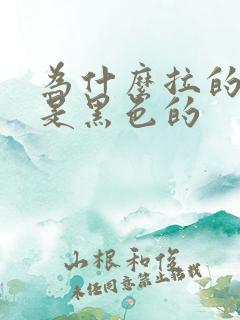 为什麽拉的
是黑色的
山根和俊
未经同意禁止转载